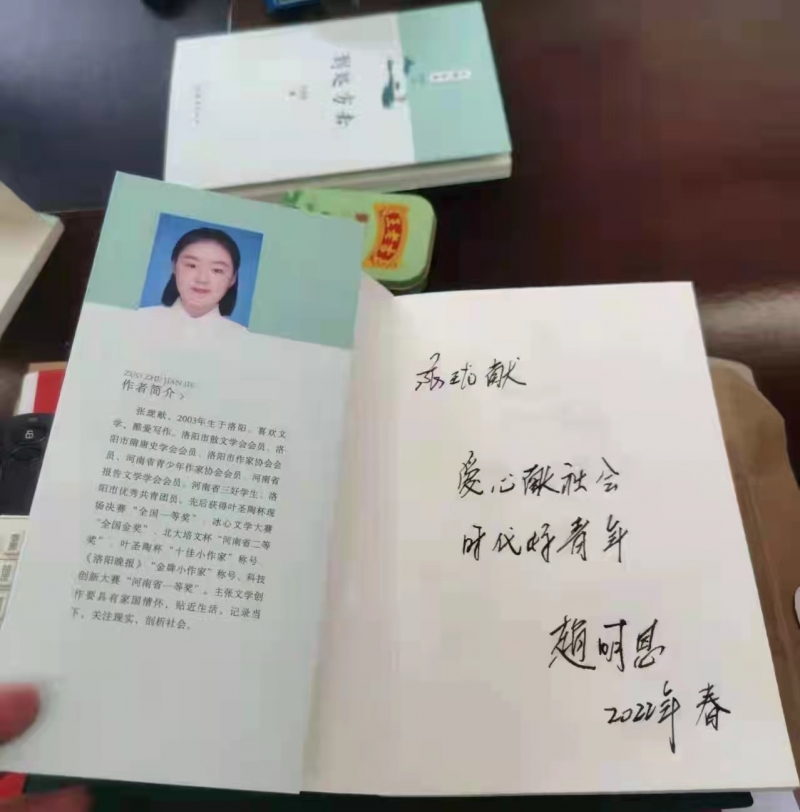 到处方书
ZUO ZHE JIAN JIE
作者简介
张珑献，2003年生于洛阳。喜欢文
学，酷爱写作。洛阳市散文学会会员、洛
阳市隋唐史学会会员、洛阳市作家协会会
员、河南省青少年作家协会会员、河南省
报告文学学会会员；河南省三好学生、洛
阳市优秀共青团员。先后获得叶圣陶杯现
场决赛“全国一等奖”、冰心文学大赛
“全国金奖”、北大培文杯“河南省二等
奖”、叶圣陶杯“十佳小作家”称号、
《洛阳晚报》“金牌小作家”称号、科技
创新大赛“河南省一等奖”。主张文学创
作要具有家国情怀，贴近生活，记录当
下，关注现实，剖析社会。
张珑献
爱心献社会
时代好青年
赵明恩
2022年春